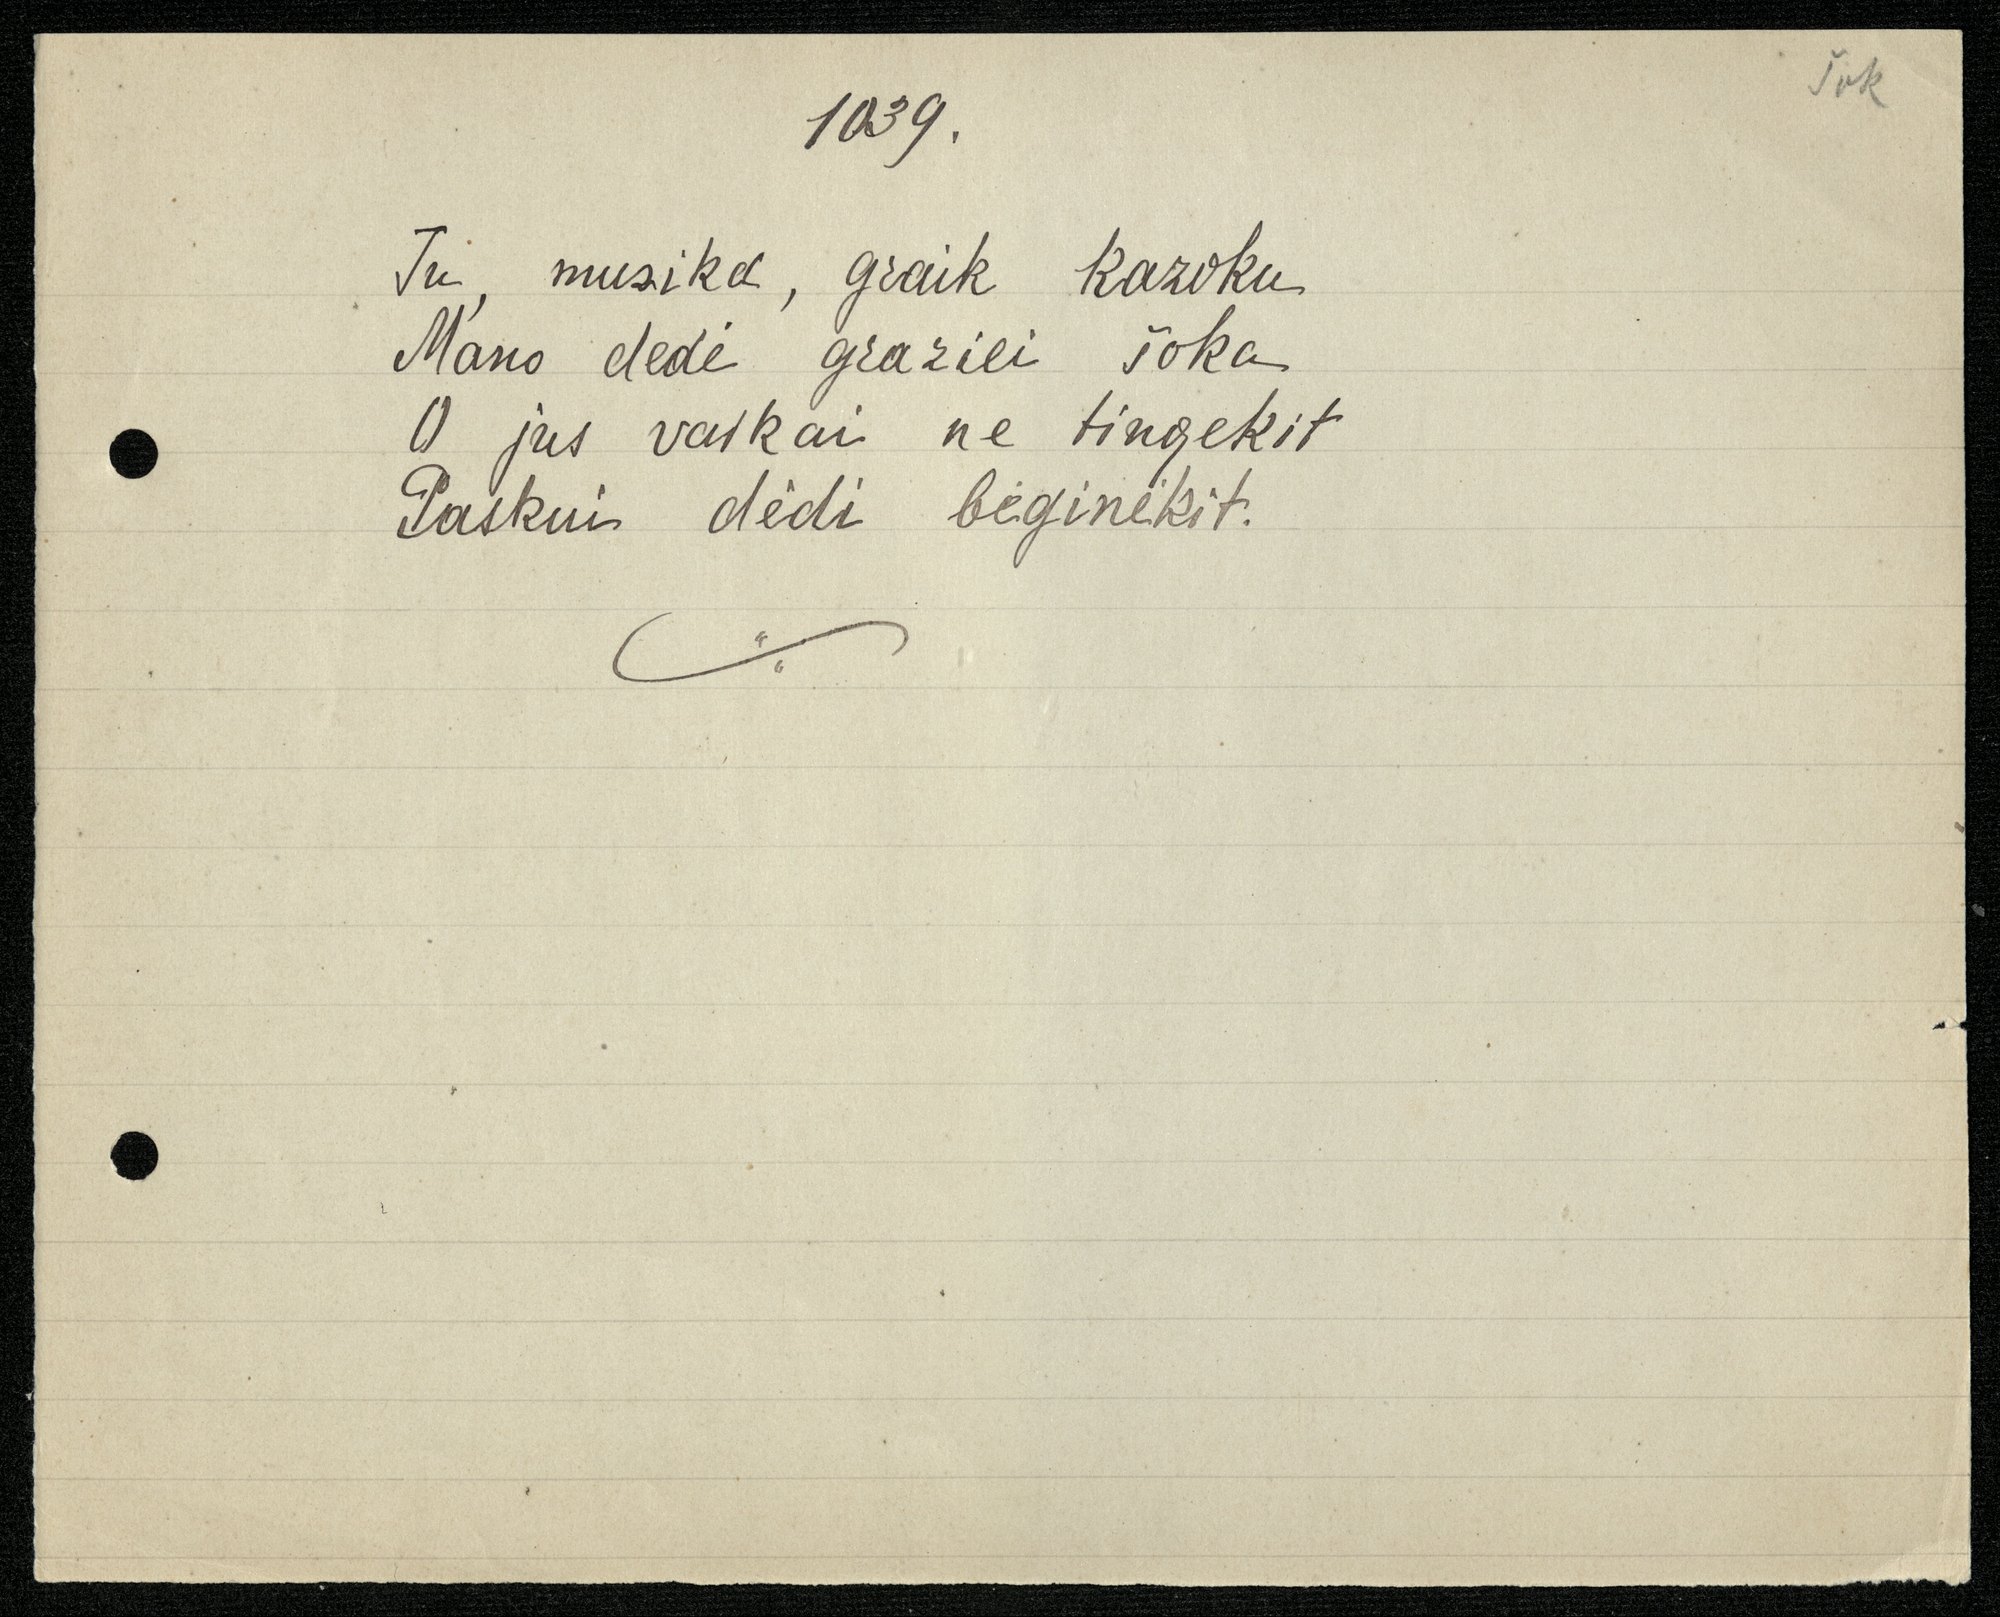 šok
1039.
Tu, musika, graik kazoku
Mano dedė grazili šoka
O jus vaikai ne tingekit
Paskui dėdi bėginėkit.